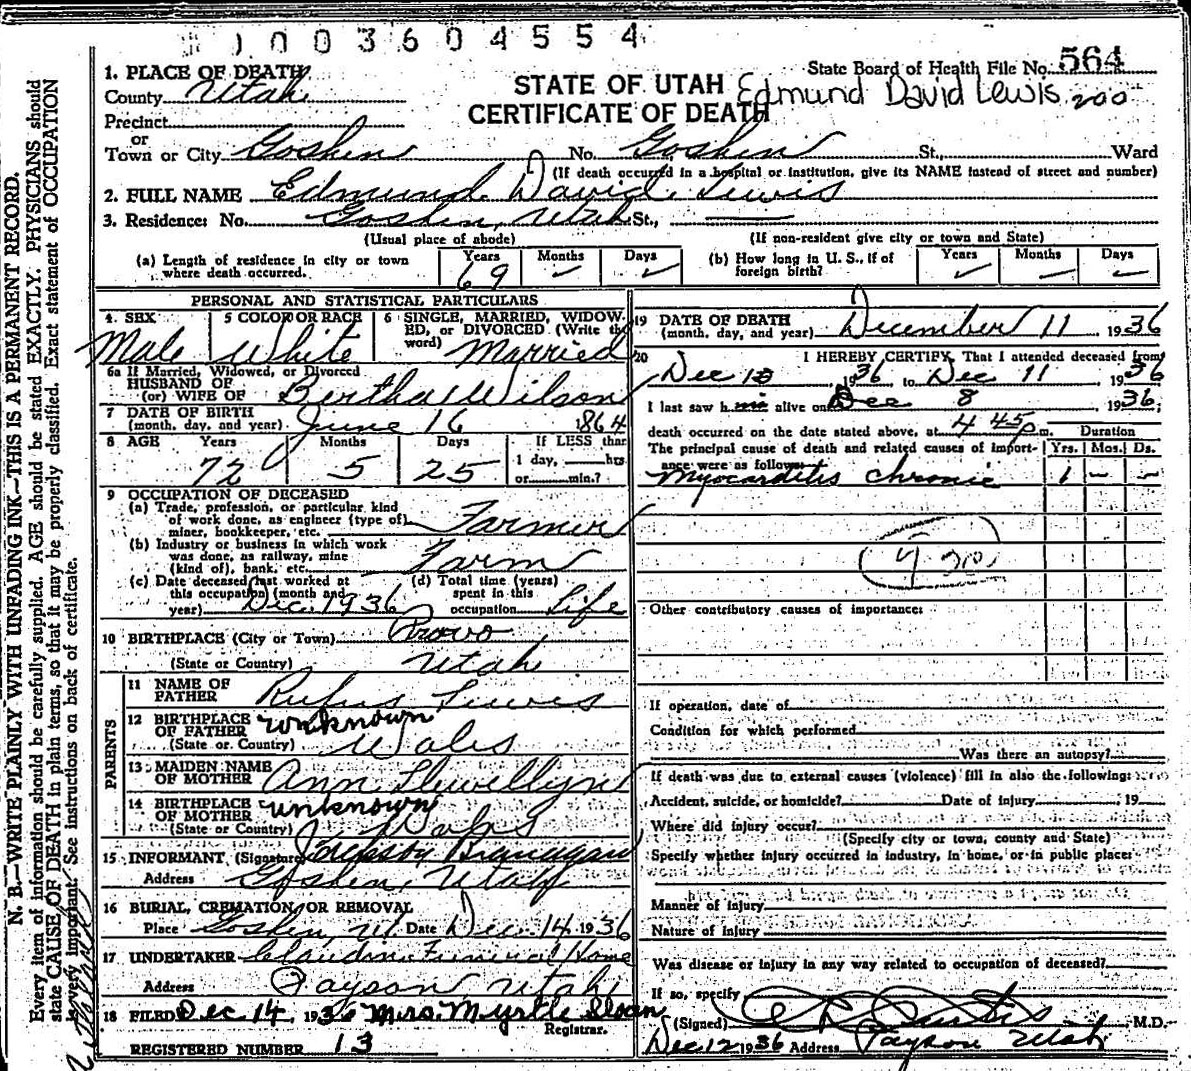 1003604554
1. PLACE OF DEATH
County Utah
Precinct
or
Town or City Goshen No. Goshen St., Ward
STATE OF UTAH
CERTIFICATE OF DEATH
State Board of Health File No. 564
Edmund David Lewis 200
(If death occurred in a hospital or institution, give its NAME instead of street and number)
2. FULL NAME Edmund David Lewis
3. Residence: No. Goshen, Utah St.,
(Usual place of abode) (If non-resident give city or town and State)
(a) Length of residence in city or town where death occurred. Years 69 Months Days
(b) How long in U. S., if of foreign birth? Years Months Days
PERSONAL AND STATISTICAL PARTICULARS
4. SEX Male
5 COLOR OR RACE White
6 SINGLE, MARRIED, WIDOWED, or DIVORCED (Write the word) Married
6a If Married, Widowed, or Divorced
HUSBAND OF
(or) WIFE OF Bertha Wilson
7 DATE OF BIRTH
(month, day, and year) June 16 1864
8 AGE Years Months Days If LESS than
72 5 25 1 day, hrs.
or min.?
9 OCCUPATION OF DECEASED
(a) Trade, profession, or particular kind
of work done, as engineer (type of)
miner, bookkeeper, etc. Farmer
(b) Industry or business in which work
was done, as railway, mine
(kind of), bank, etc. Farm
(c) Date deceased last worked at
this occupation (month and
year) Dec. 1936
(d) Total time (years)
spent in this
occupation Life
10 BIRTHPLACE (City or Town) Provo
(State or Country) Utah
PARENTS
11 NAME OF
FATHER Rufus Lewis
12 BIRTHPLACE
OF FATHER unknown
(State or Country) Wales
13 MAIDEN NAME
OF MOTHER Ann Llewellyn
14 BIRTHPLACE
OF MOTHER unknown
(State or Country) Wales
15 INFORMANT (Signature)
Address Goshen, Utah
16 BURIAL, CREMATION, OR REMOVAL
Place Goshen, Ut. Date Dec. 14, 1936
17 UNDERTAKER Claudin Funeral Home
Address Payson Utah
18 FILED Dec 14, 1936 Mrs. Myrtle Sloan
Registrar.
REGISTERED NUMBER 13
19 DATE OF DEATH
(month, day, and year) December 11 1936
20 I HEREBY CERTIFY, That I attended deceased from
Dec 10 1936 to Dec 11 1936
I last saw him alive on Dec 8 1936;
death occurred on the date stated above, at 4 45 p m. Duration
The principal cause of death and related causes of importance were as follows: Yrs. Mos. Ds.
Myocarditis chronic 1 - -
Other contributory causes of importance:
If operation, date of
Condition for which performed
Was there an autopsy?
If death was due to external causes (violence) fill in also the following:
Accident, suicide, or homicide? Date of injury , 19
Where did injury occur?
(Specify city or town, county and State)
Specify whether injury occurred in industry, in home, or in public place:
Manner of injury
Nature of injury
Was disease or injury in any way related to occupation of deceased?
If so, specify
(Signed) M.D.
Dec 12 1936 Address Payson Utah
N. B.—WRITE PLAINLY WITH UNFADING INK—THIS IS A PERMANENT RECORD.
Every item of information should be carefully supplied. AGE should be stated EXACTLY. PHYSICIANS should
state CAUSE OF DEATH in plain terms, so that it may be properly classified. Exact statement of OCCUPATION
is very important. See instructions on back of certificate.